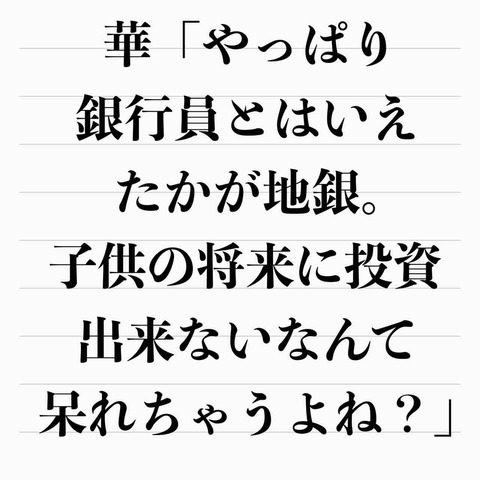 華「やっぱり
銀行員とはいえ
たかが地銀。
子供の将来に投資
出来ないなんて
呆れちゃうよね？」